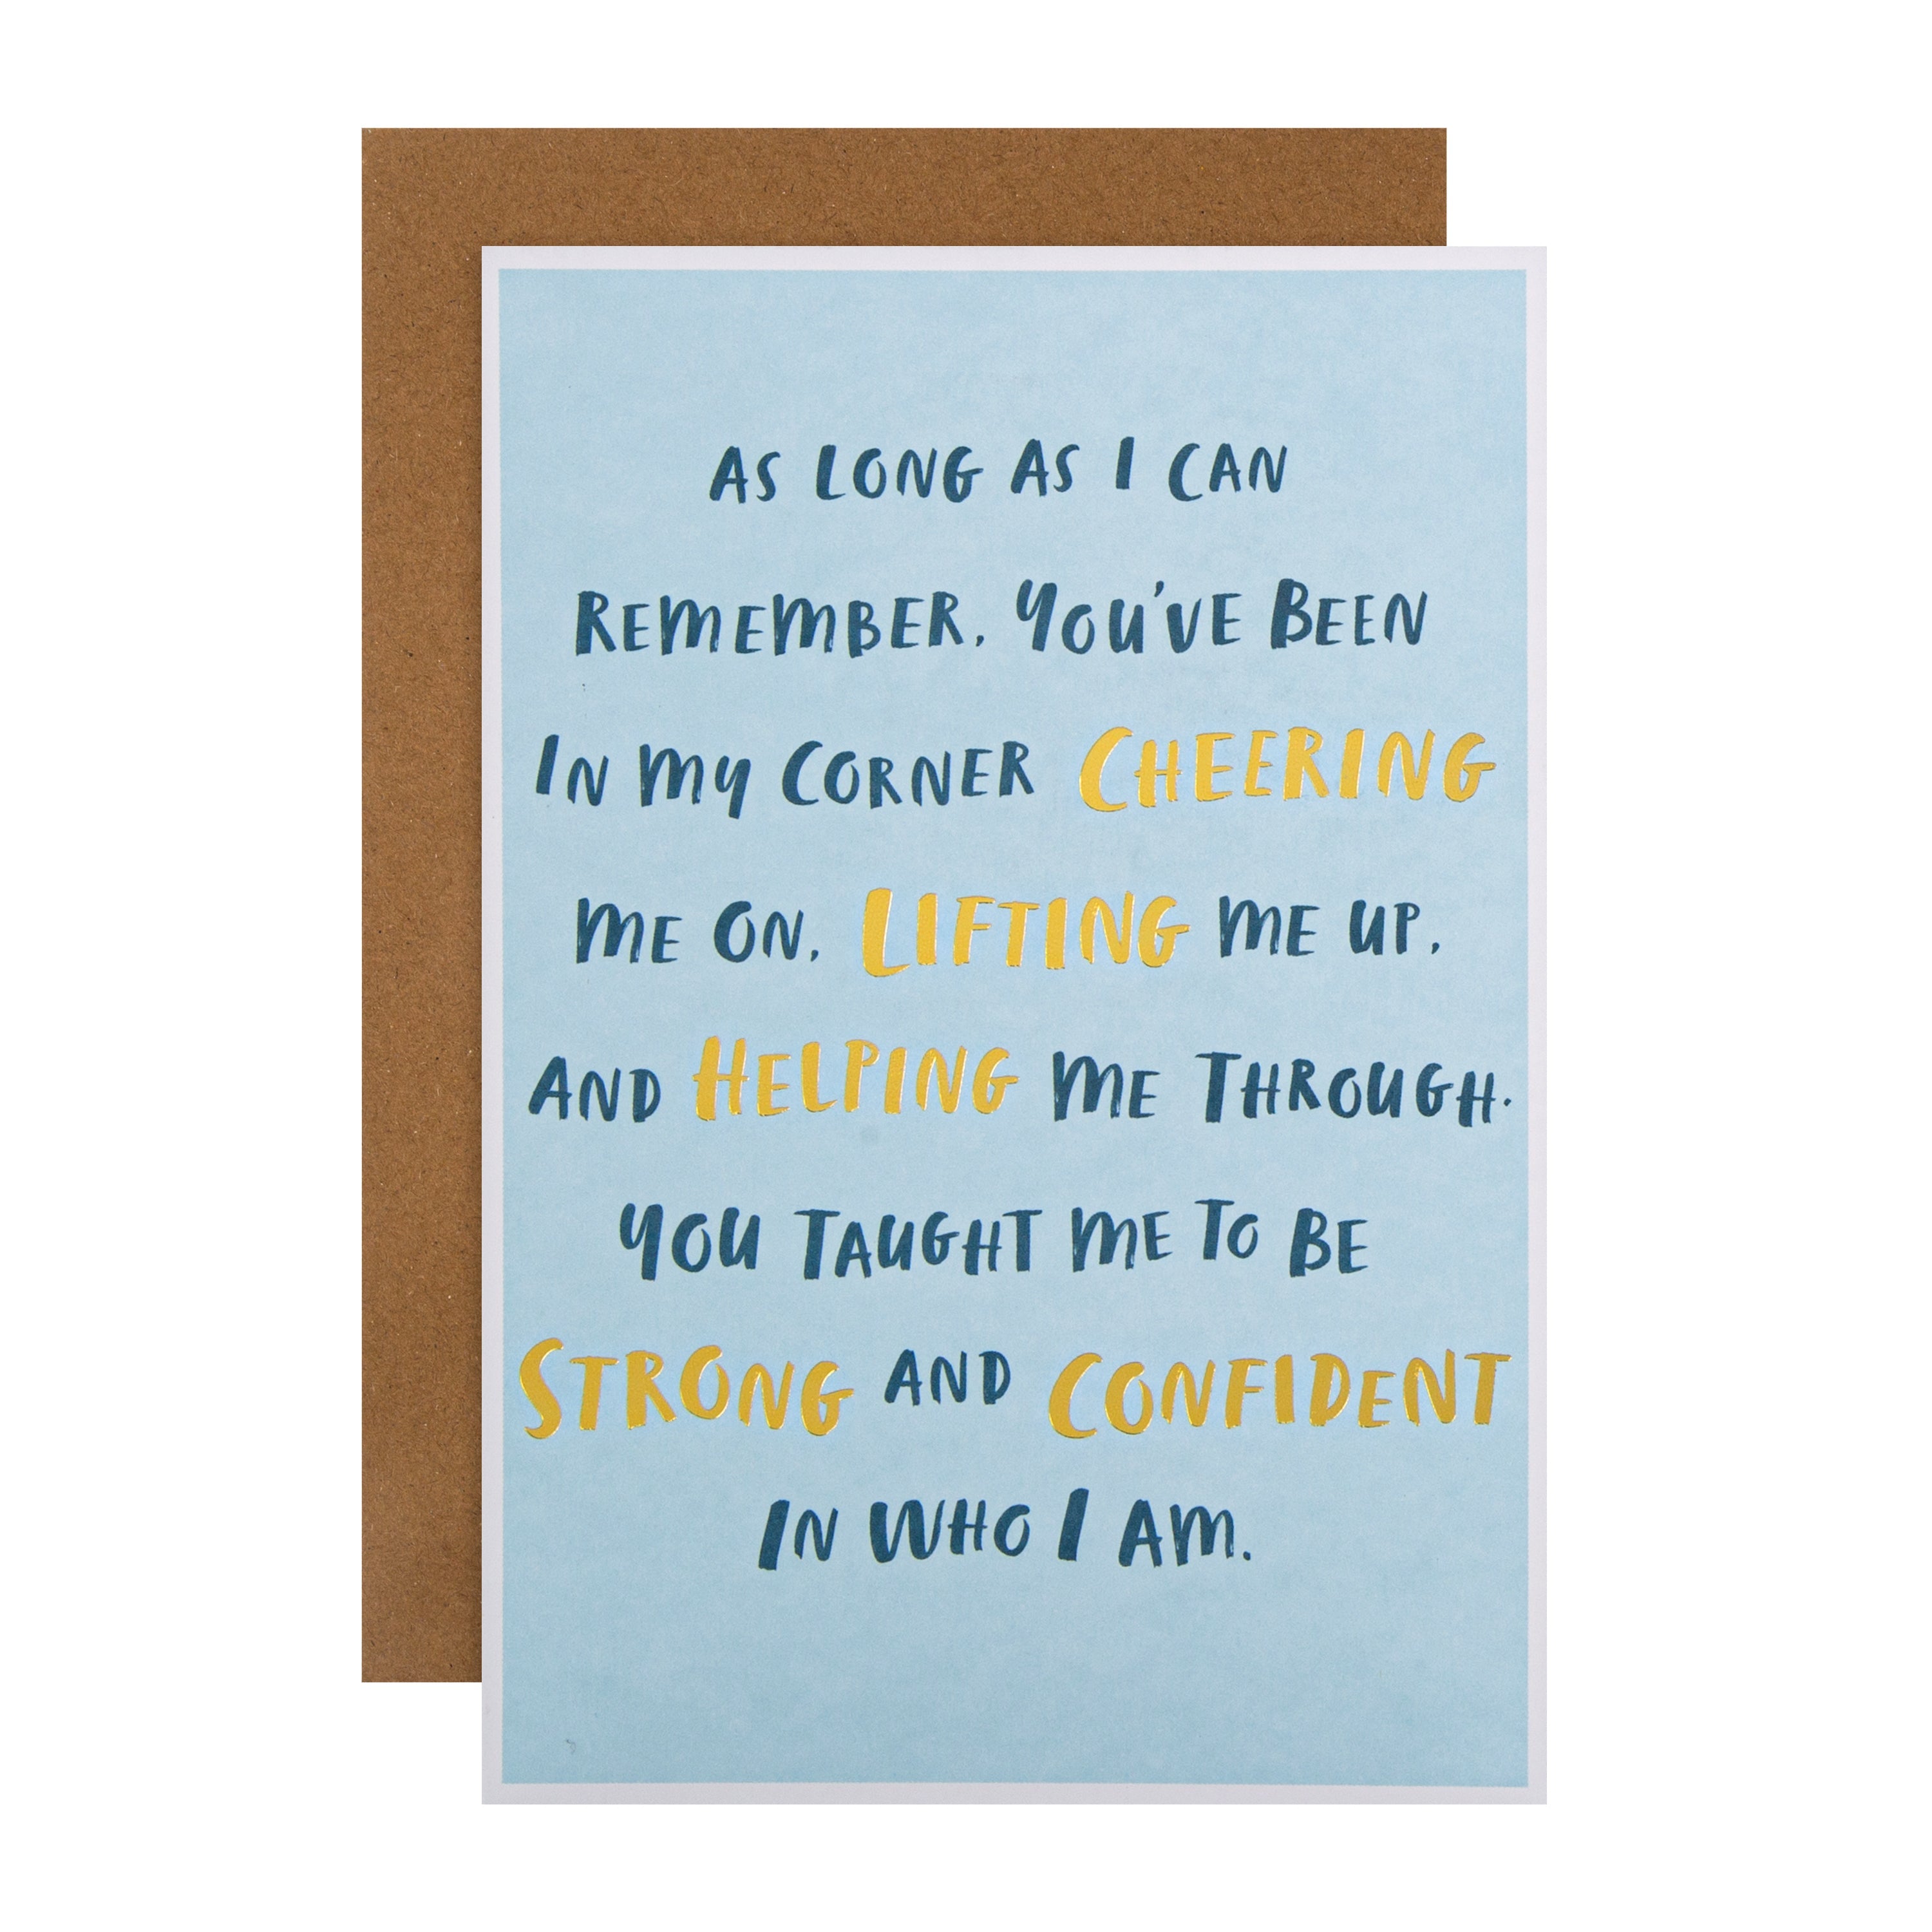 AS LONG AS I CAN
REMEMBER, YOU'VE BEEN
IN MY CORNER CHEERING
ME ON, LIFTING ME UP,
AND HELPING ME THROUGH.
YOU TAUGHT ME TO BE
STRONG AND CONFIDENT
IN WHO I AM.